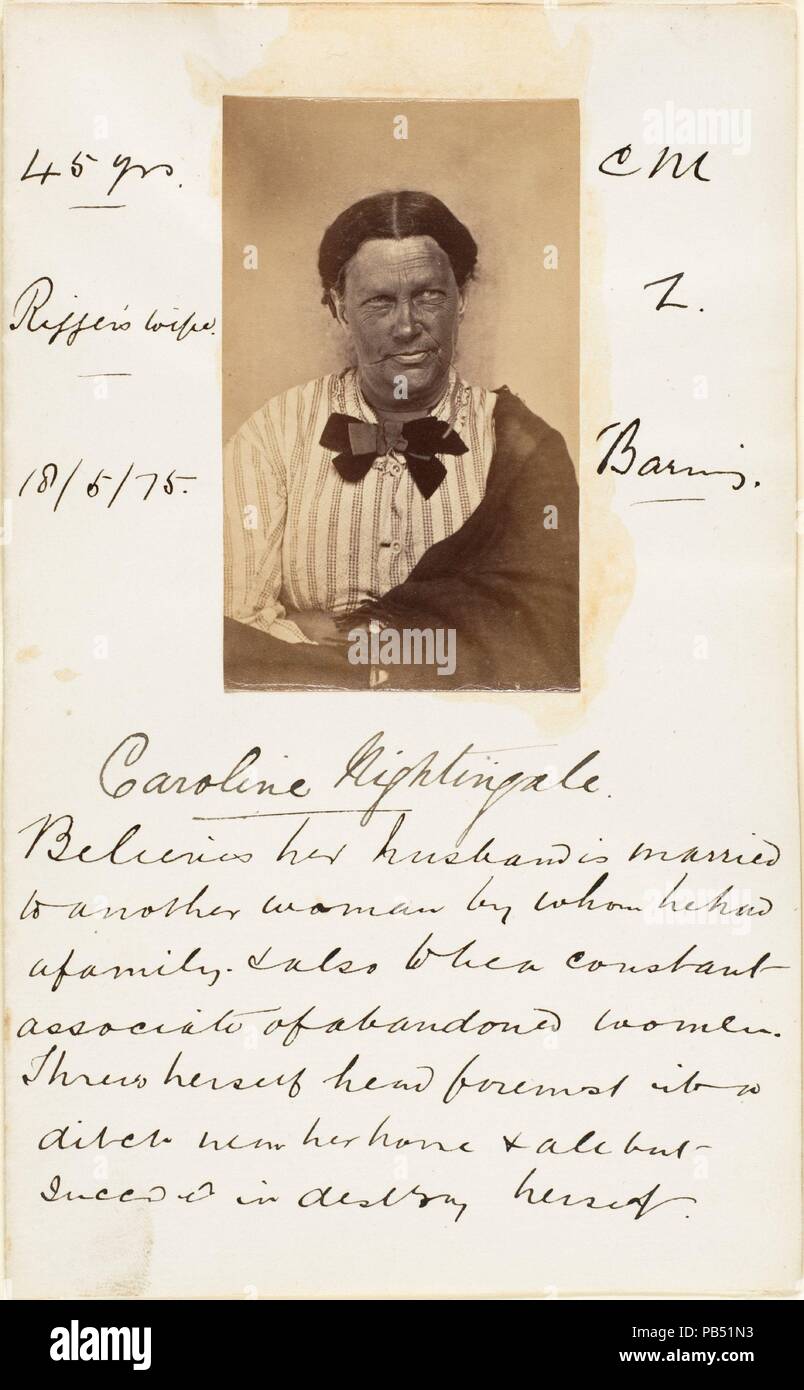 45 yrs.
CM
wife.
18/5/75.
Caroline Nightingale.
Believes her husband is married
to another woman by whom he had
a family. & also to be a constant
associate of abandoned women.
Threw herself head foremost into a
ditch near her home & all but
succeed in destroy herself.
alamy
alamy
Image ID: PB51N3
www.alamy.com